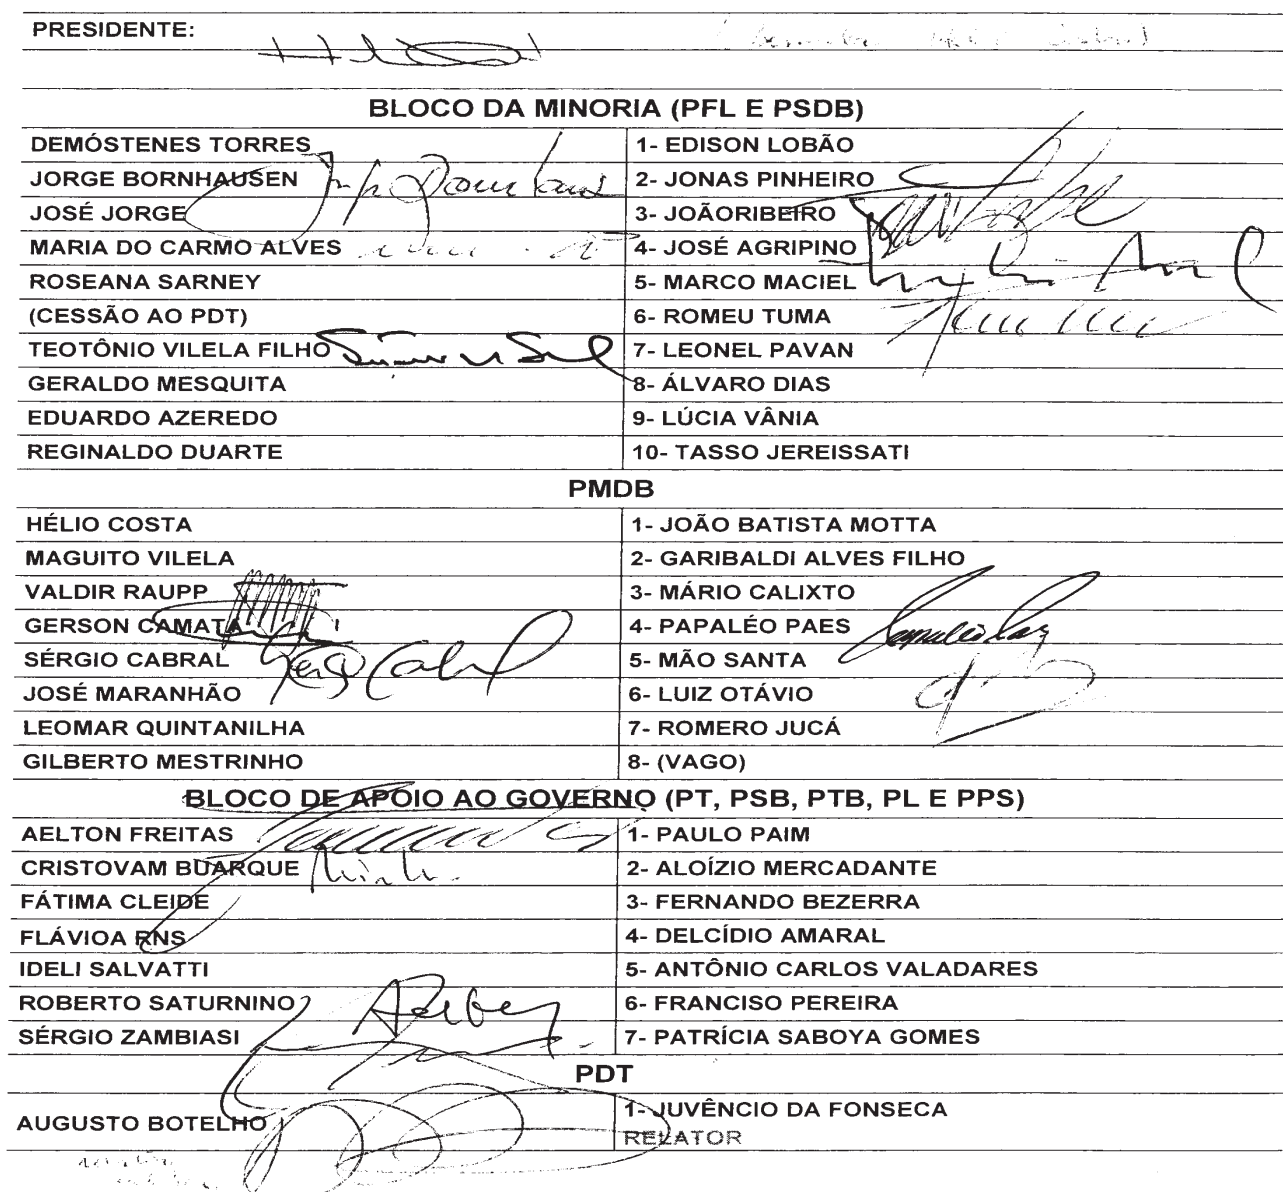 PRESIDENTE:
BLOCO DA MINORIA (PFL E PSDB)
DEMÓSTENES TORRES 1- EDISON LOBÃO
JORGE BORNHAUSEN 2- JONAS PINHEIRO
JOSÉ JORGE 3- JOÃORIBEIRO
MARIA DO CARMO ALVES 4- JOSÉ AGRIPINO
ROSEANA SARNEY 5- MARCO MACIEL
(CESSÃO AO PDT) 6- ROMEU TUMA
TEOTÔNIO VILELA FILHO 7- LEONEL PAVAN
GERALDO MESQUITA 8- ÁLVARO DIAS
EDUARDO AZEREDO 9- LÚCIA VÂNIA
REGINALDO DUARTE 10- TASSO JEREISSATI
PMDB
HÉLIO COSTA 1- JOÃO BATISTA MOTTA
MAGUITO VILELA 2- GARIBALDI ALVES FILHO
VALDIR RAUPP 3- MÁRIO CALIXTO
GERSON CAMATA 4- PAPALÉO PAES
SÉRGIO CABRAL 5- MÃO SANTA
JOSÉ MARANHÃO 6- LUIZ OTÁVIO
LEOMAR QUINTANILHA 7- ROMERO JUCÁ
GILBERTO MESTRINHO 8- (VAGO)
BLOCO DE APOIO AO GOVERNO (PT, PSB, PTB, PL E PPS)
AELTON FREITAS 1- PAULO PAIM
CRISTOVAM BUARQUE 2- ALOÍZIO MERCADANTE
FÁTIMA CLEIDE 3- FERNANDO BEZERRA
FLÁVIOA RNS 4- DELCÍDIO AMARAL
IDELI SALVATTI 5- ANTÔNIO CARLOS VALADARES
ROBERTO SATURNINO 6- FRANCISO PEREIRA
SÉRGIO ZAMBIASI 7- PATRÍCIA SABOYA GOMES
PDT
AUGUSTO BOTELHO 1- JUVÊNCIO DA FONSECA
RELATOR